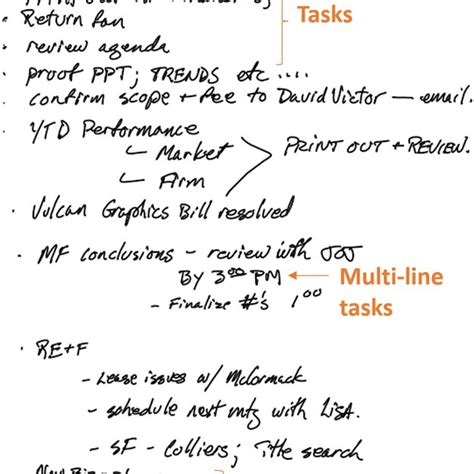 Tasks
• Return fan
• review agenda
• proof PPT; TRENDS etc ....
• confirm scope + fee to David Victor — email.
• YTD Performance
Market
Firm
PRINT OUT + REVIEW.
• Vulcan Graphics Bill resolved
• MF conclusions - review with JOJ
BY 3:00 PM
- Finalize #'s 1:00
Multi-line
tasks
• RE+F
- Lease issues w/ McCormack
- schedule next mtg with LISA.
- SF - Colliers; Title search